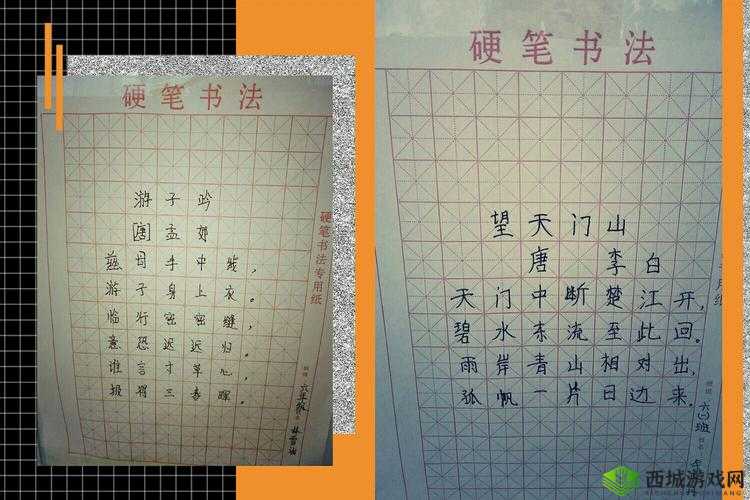 硬笔书法
游子吟
[唐]孟郊
慈母手中线，
游子身上衣。
临行密密缝，
意恐迟近归。
谁言寸草心，
报得三春晖。
硬笔书法专用纸
班级 六年级
硬笔书法
望天门山
唐 李白
天门中断楚江开，
碧水东流至此回。
雨岸青山相对出，
孤帆一片日边来。
用纸
班级 六(一)班
西城游戏网